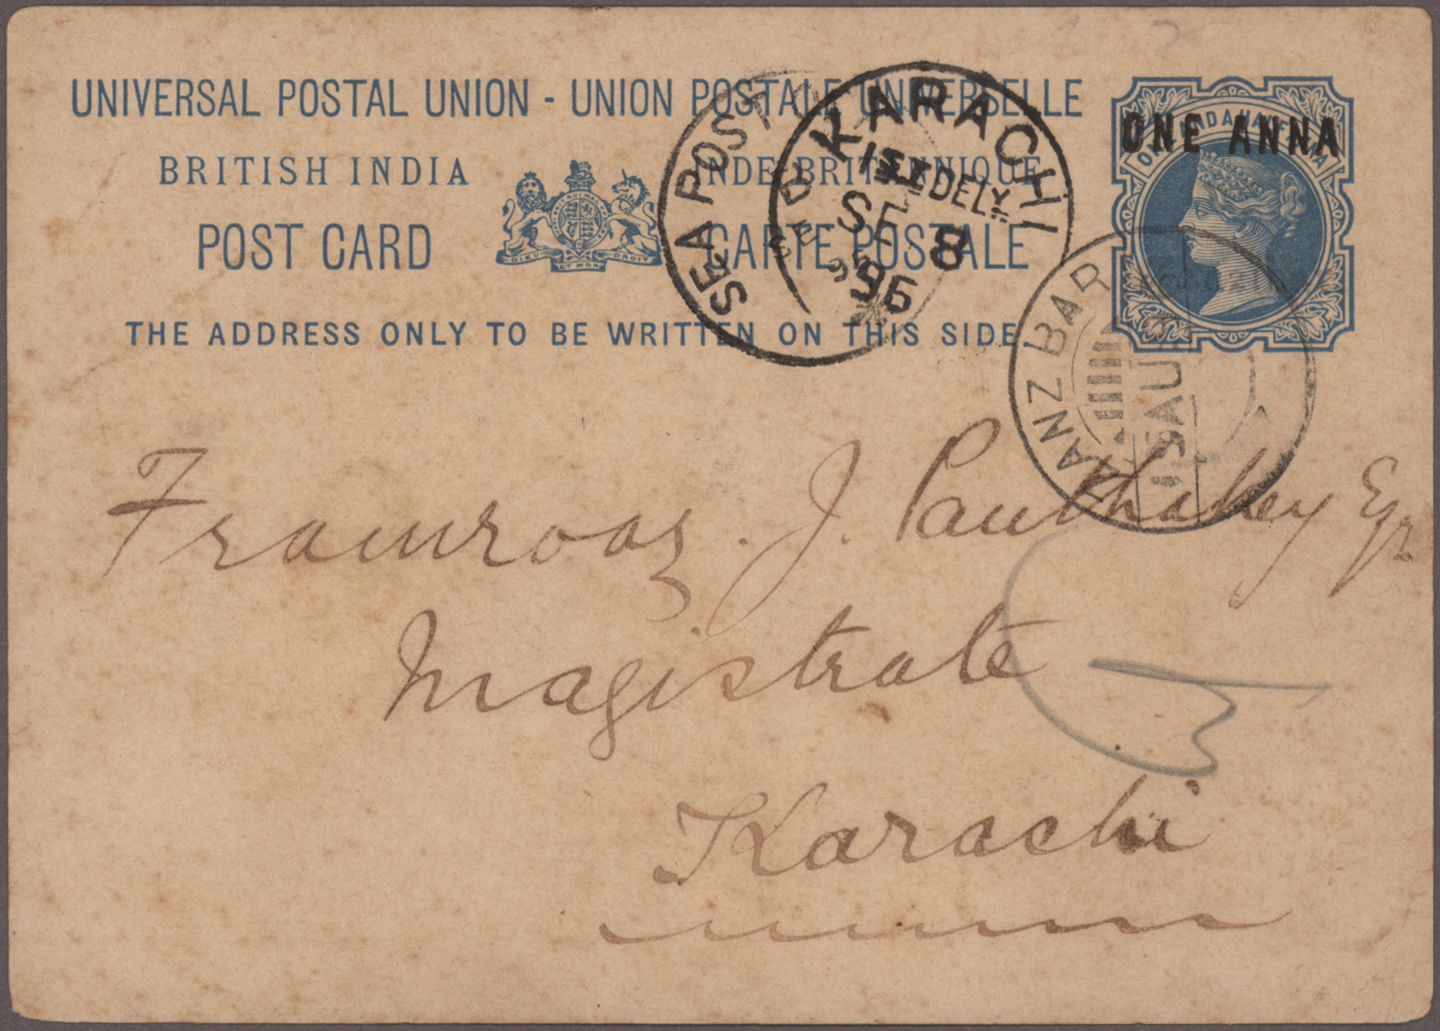 UNIVERSAL POSTAL UNION - UNION POSTALE UNIVERSELLE
BRITISH INDIA INDE-BRITANNIQUE
POST CARD CARTE POSTALE
THE ADDRESS ONLY TO BE WRITTEN ON THIS SIDE
ONE ANNA
SEA POST
B
KARACHI
1ST DELY
SE 8
96
ZANZIBAR
AU
Framroaz. J. Panthakey Eqr
Magistrate
Karachi